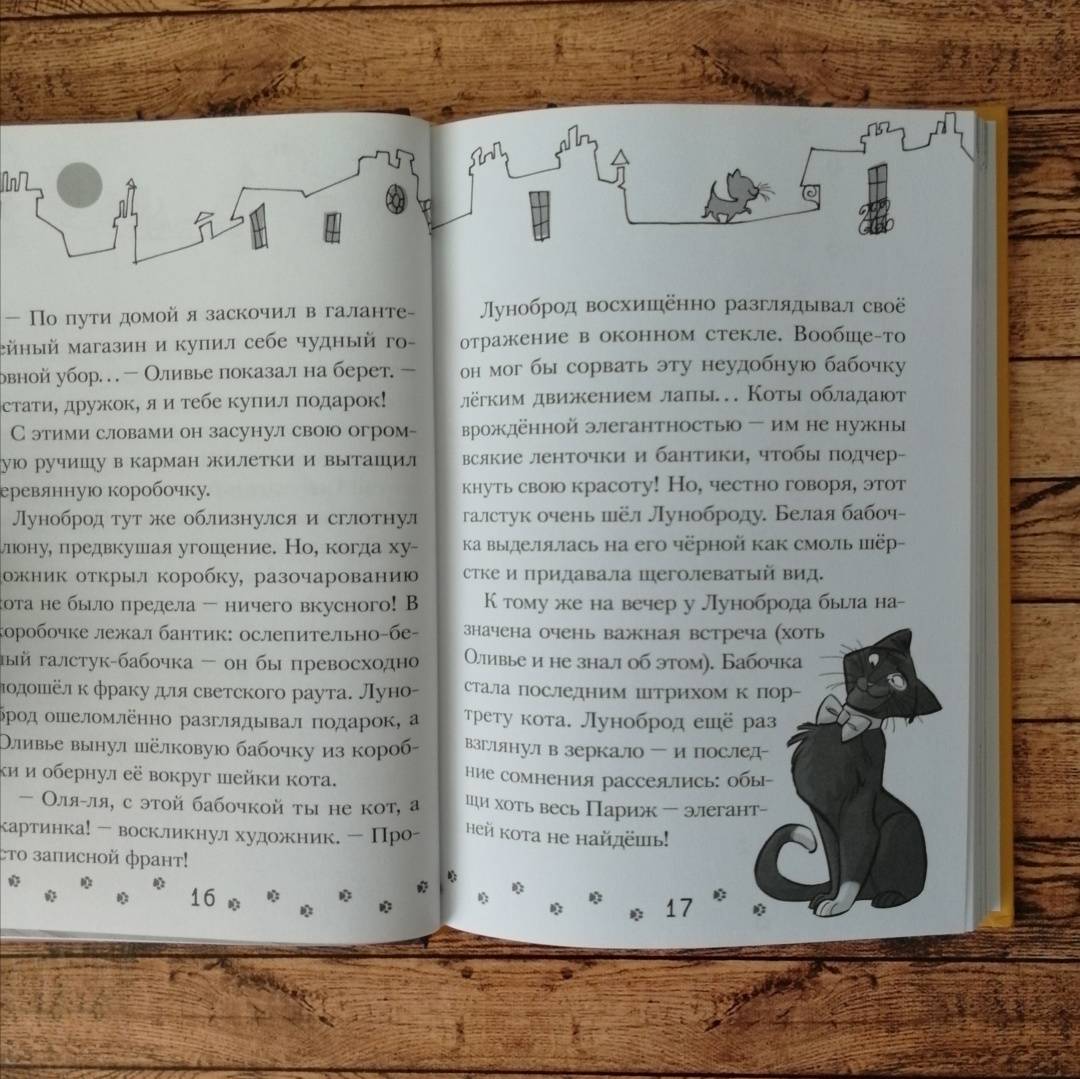 — По пути домой я заскочил в галанте-
ейный магазин и купил себе чудный го-
овной убор... — Оливье показал на берет. —
стати, дружок, я и тебе купил подарок!
С этими словами он засунул свою огром-
ую ручищу в карман жилетки и вытащил
еревянную коробочку.
Луноброд тут же облизнулся и сглотнул
люну, предвкушая угощение. Но, когда ху-
ожник открыл коробку, разочарованию
кота не было предела — ничего вкусного! В
коробочке лежал бантик: ослепительно-бе-
лый галстук-бабочка — он бы превосходно
подошёл к фраку для светского раута. Луно-
брод ошеломлённо разглядывал подарок, а
Оливье вынул шёлковую бабочку из короб-
ки и обернул её вокруг шейки кота.
— Оля-ля, с этой бабочкой ты не кот, а
картинка! — воскликнул художник. — Про-
сто записной франт!
16
Луноброд восхищённо разглядывал своё
отражение в оконном стекле. Вообще-то
он мог бы сорвать эту неудобную бабочку
лёгким движением лапы... Коты обладают
врождённой элегантностью — им не нужны
всякие ленточки и бантики, чтобы подчер-
кнуть свою красоту! Но, честно говоря, этот
галстук очень шёл Луноброду. Белая бабоч-
ка выделялась на его чёрной как смоль шёр-
стке и придавала щеголеватый вид.
К тому же на вечер у Луноброда была на-
значена очень важная встреча (хоть
Оливье и не знал об этом). Бабочка
стала последним штрихом к пор-
трету кота. Луноброд ещё раз
взглянул в зеркало — и послед-
ние сомнения рассеялись: обы-
щи хоть весь Париж — элегант-
ней кота не найдёшь!
17